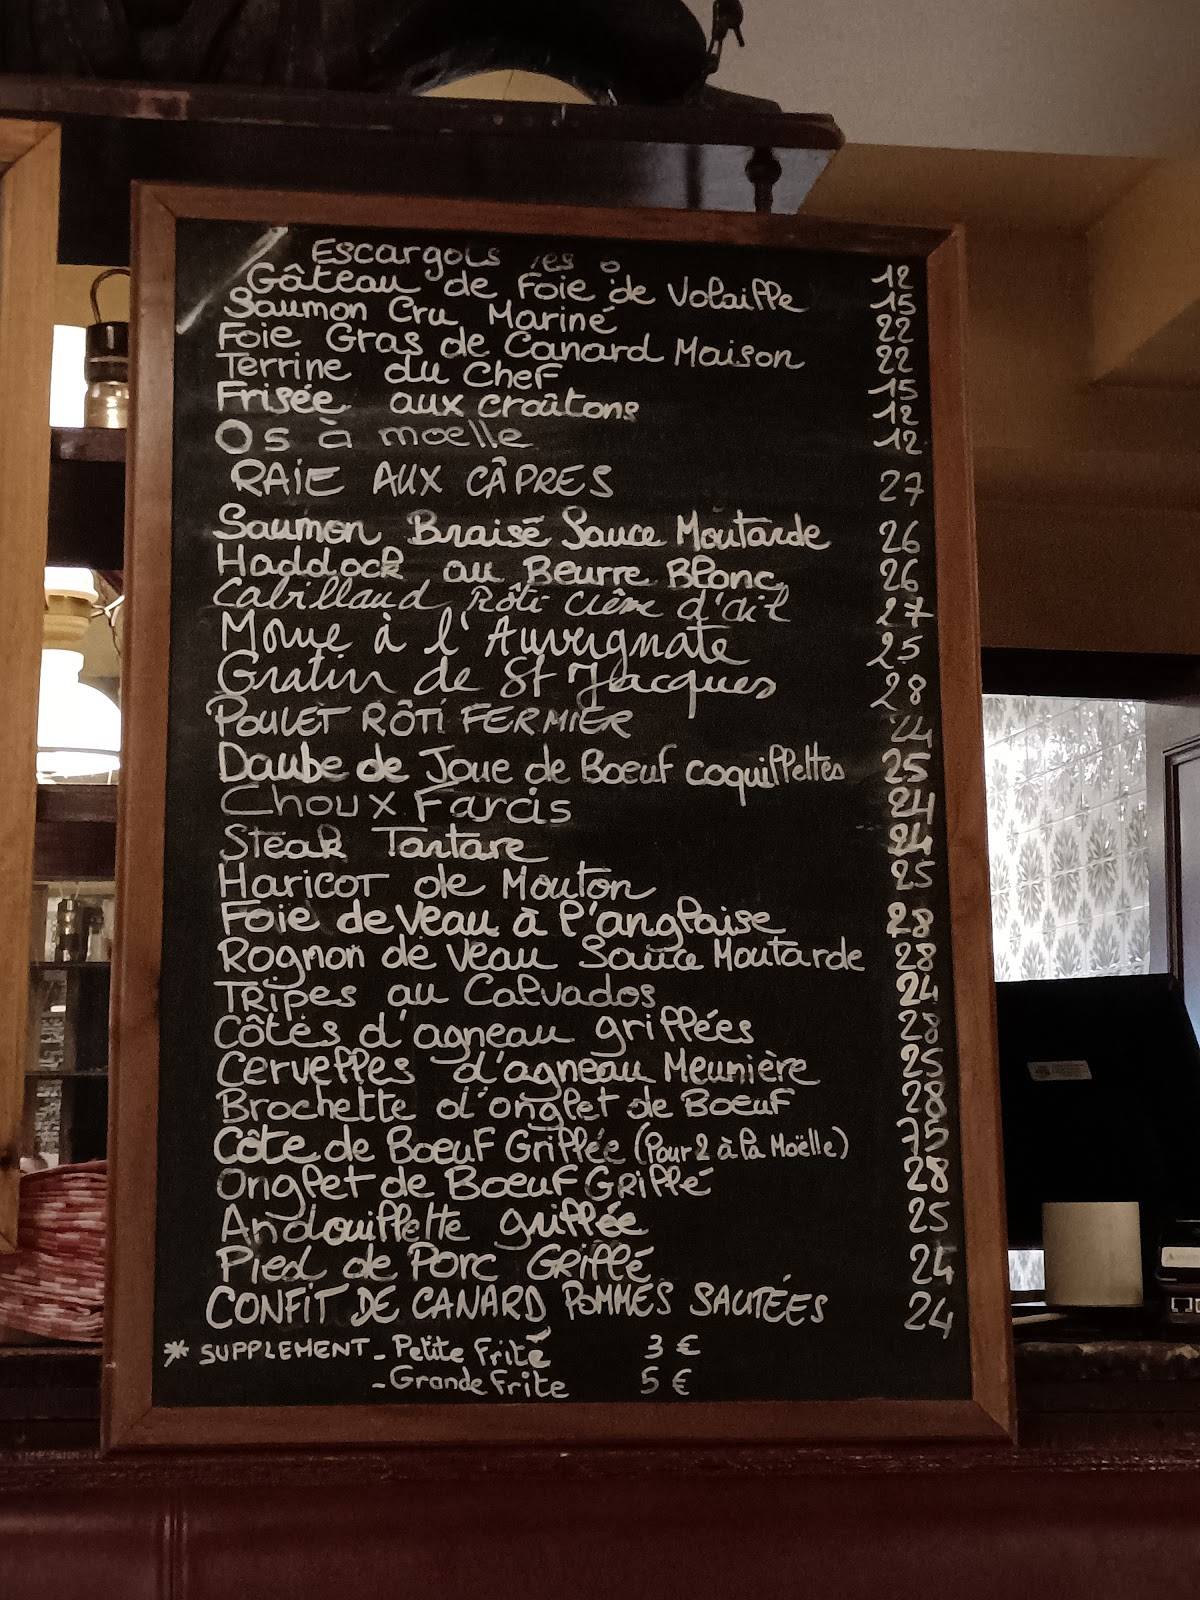 Escargots 12
Gâteau de Foie de Volaille 15
Saumon Cru Mariné 22
Foie Gras de Canard Maison 22
Terrine du Chef 15
Frisée aux croûtons 12
Os à moelle 12
RAIE AUX CÂPRES 27
Saumon Braisé Sauce Moutarde 26
Haddock au Beurre Blanc 26
Cabillaud Rôti Crème d'ail 27
Morue à l'Auvergnate 25
Gratin de St Jacques 28
POULET RÔTI FERMIER 24
Daube de Joue de Boeuf coquillettes 25
Choux Farcis 24
Steak Tartare 24
Haricot de Mouton 25
Foie de Veau à l'anglaise 28
Rognon de Veau Sauce Moutarde 28
Tripes au Calvados 24
Côtes d'agneau grillées 28
Cervelles d'agneau Meunière 25
Brochette d'onglet de Boeuf 28
Côte de Boeuf Grillée (Pour 2 à la Moëlle) 75
Onglet de Boeuf Grillé 28
Andouillette grillée 25
Pied de Porc Grillé 24
CONFIT DE CANARD POMMES SAUTÉES 24
* SUPPLEMENT - Petite Frite 3 €
- Grande Frite 5 €